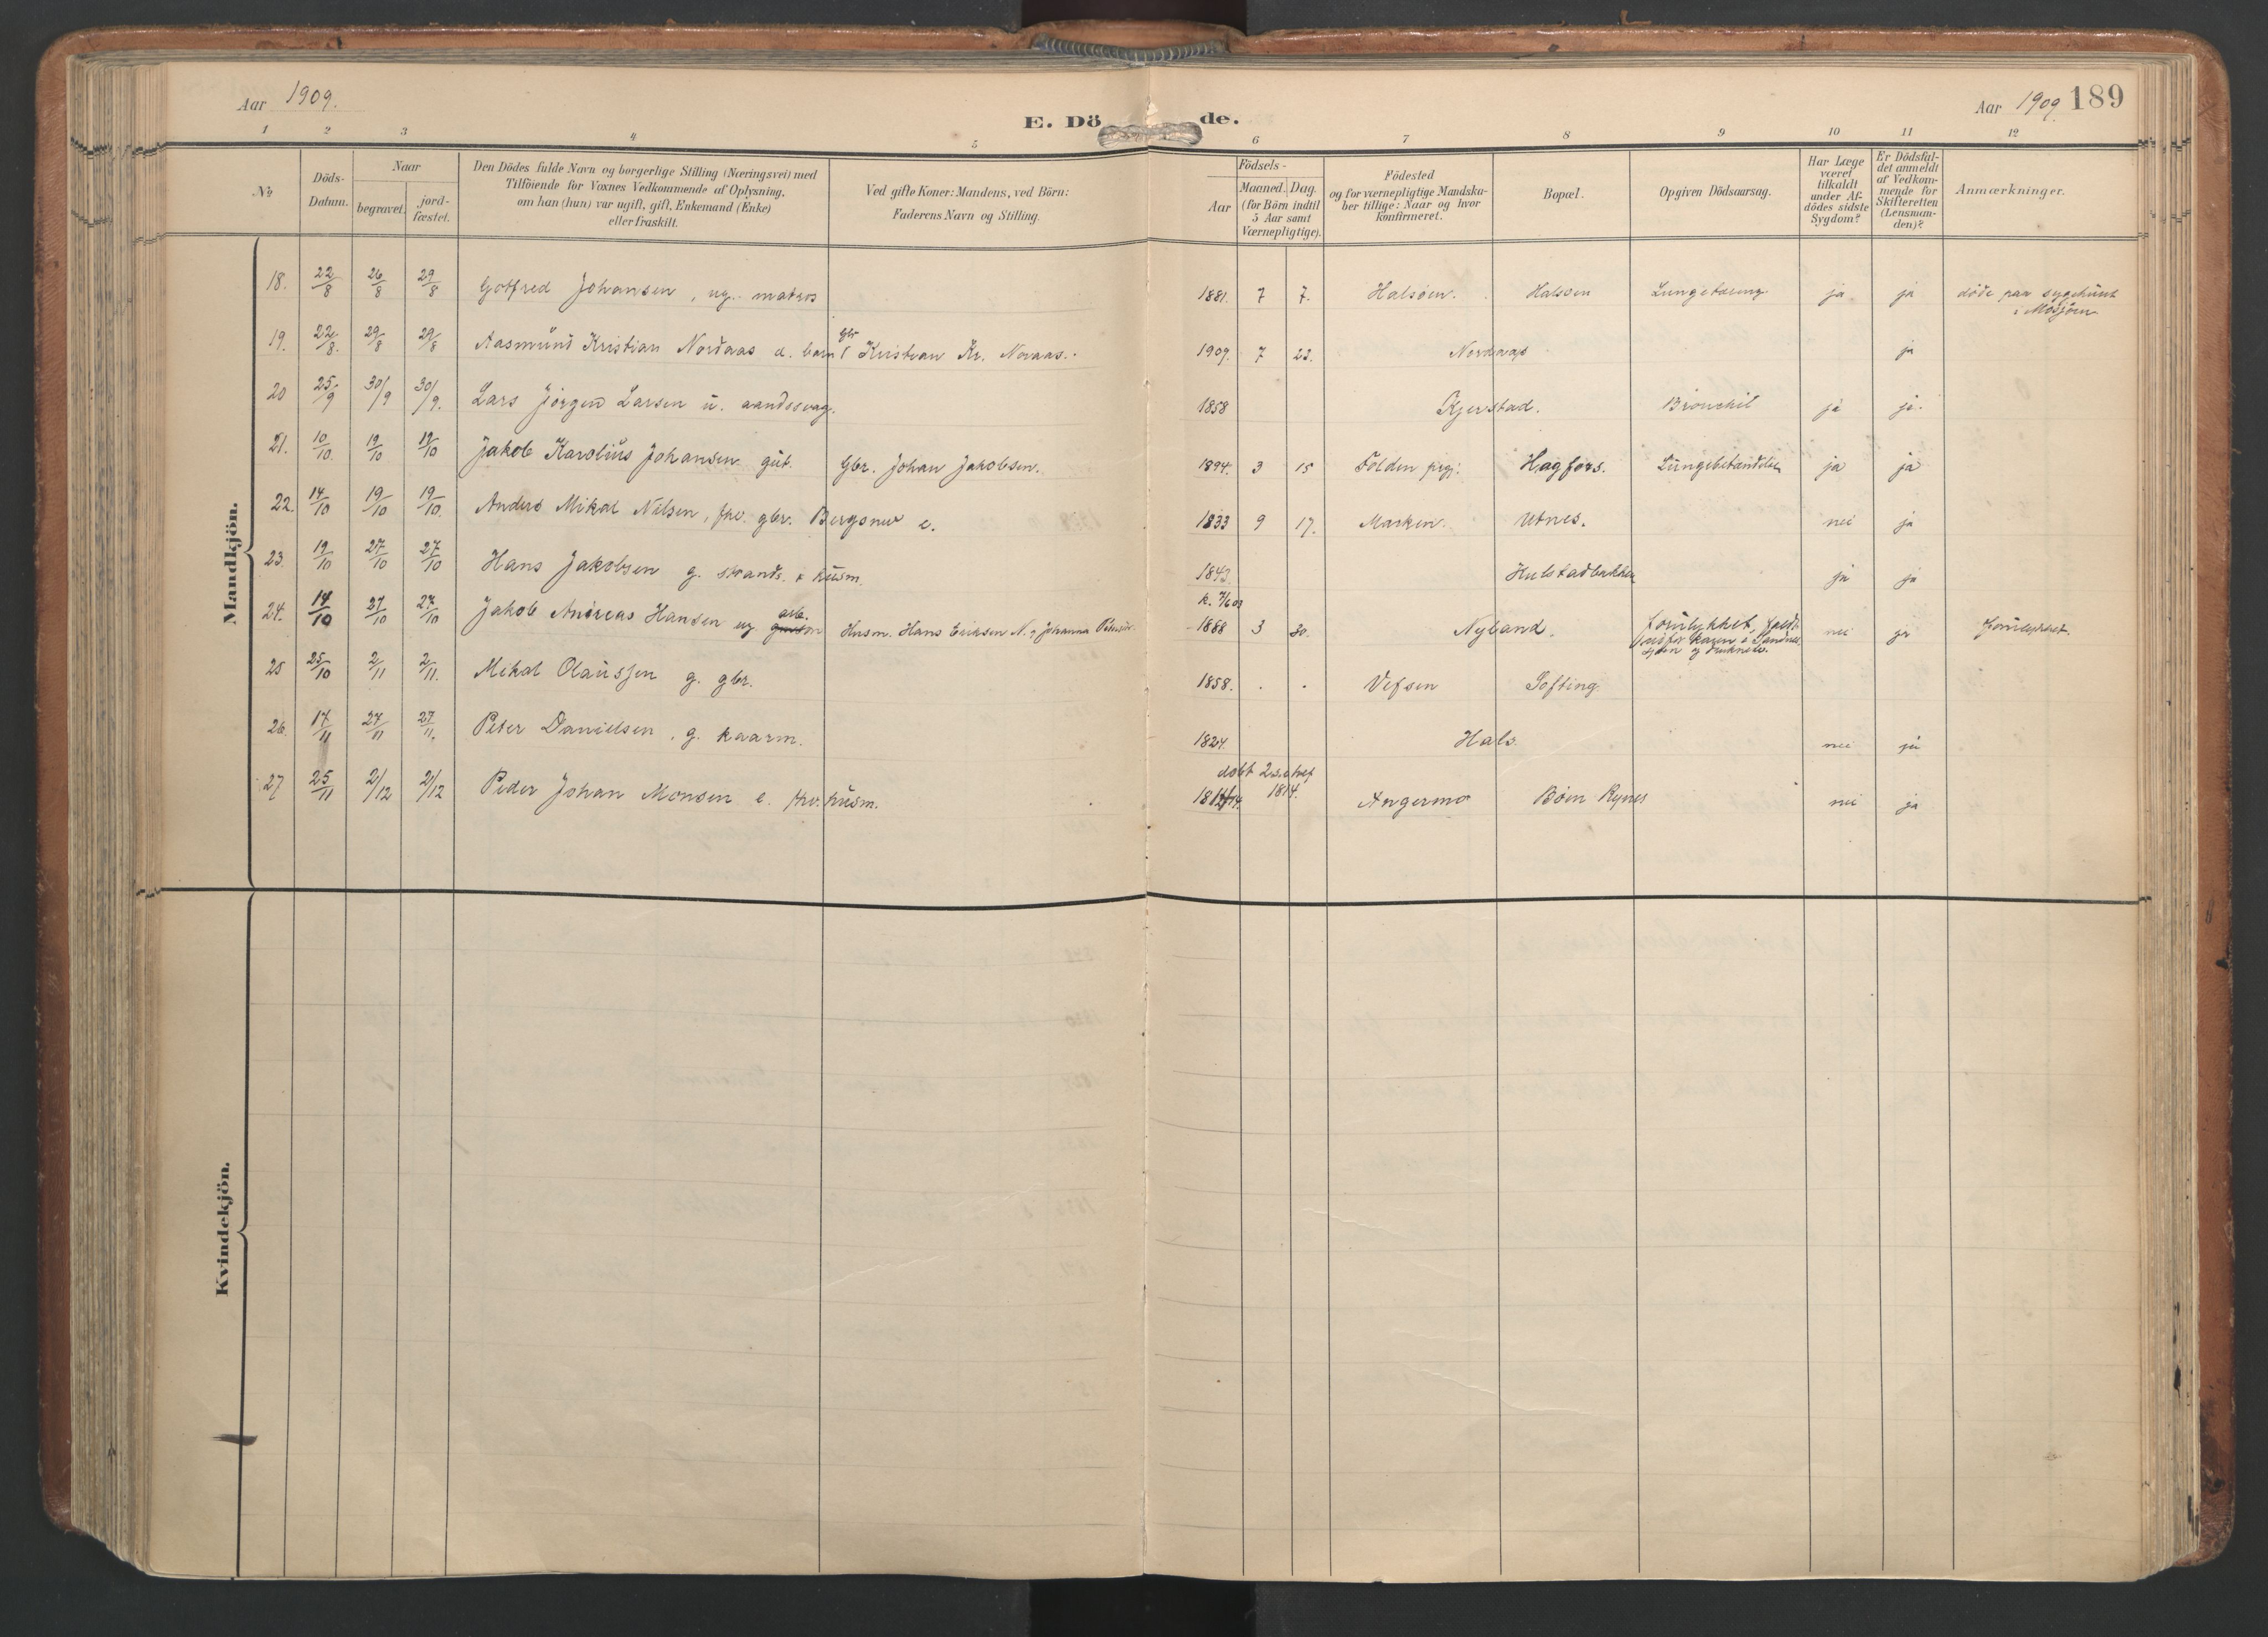 Aar 1909.
E. Dö de.
Aar 1909. 189
1 2 3 4 5 6 7 8 9 10 11 12
No
Döds-
Datum.
Naar
begravet.
jord-
fæstet.
Den Dödes fulde Navn og borgerlige Stilling (Næringsvei) med
Tilföiende for Voxnes Vedkommende af Oplysning,
om han (hun) var ugift, gift, Enkemand (Enke)
eller fraskilt.
Ved gifte Koner: Mandens, ved Börn:
Faderens Navn og Stilling.
Födsels-
Aar
Maaned. Dag.
(for Börn indtil
5 Aar samt
Værnepligtige).
Födested
og for værnepligtige Mandska-
ber tillige: Naar og hvor
konfirmeret.
Bopæl.
Opgiven Dödsaarsag.
Har Læge
været
tilkaldt
under Af-
dödes sidste
Sygdom?
Er Dödsfal-
det anmeldt
af Vedkom-
mende for
Skifteretten
(Lensman-
den)?
Anmærkninger.
Mandkjön.
18. 22/8 26/8 29/8 Gotfred Johansen, ug. matros 1881. 7 7. Halsöen. Halsöen Lungetæring ja ja döde paa sygehuset
i Mosjöen
gbr
19. 22/8. 29/8 29/8 Aasmund Kristian Nordaas d. barn Kristian Kr. Noraas. 1909. 7 23. Nordaas ja
20 25/9 30/9 30/9. Lars Jörgen Larsen u. aandssvag. 1858 Kjerstad. Bronchit ja ja.
21. 10/10. 19/10 19/10 Jakob Karolius Johansen gut. Gbr. Johan Jakobsen. 1894. 3 15 Folden prgj. Hagfors. Lungebetændelse ja ja
22. 14/10 19/10 19/10. Anders Mikal Nilsen, fhv. gbr. Bergsnev e. 1833 9 17. Marken. Utnes. nei ja
23. 19/10 27/10 27/10 Hans Jakobsen g. strands. & husm. 1843. Hulstadbakken ja ja
arb. k. 7/6 03
24. 14/10 27/10 27/10 Jakob Andreas Hansen ug Husm. Hans Eriksen N. og Johanna 1888 3 30. Nyland. forulykket, faldt
nei ja forulykket.
og druknede.
25 25/10 2/11 2/11. Mikal Olaussen g. gbr. 1858. . . Vefsen Softing
26. 17/11 27/11 27/11. Peter Danielsen, g. kaarm. 1824. Hals. nei ja
döbt 1814.
27 25/11 2/12 2/12 Peder Johan Monsen e. fhv. husm. Angermo Böen Rynes nei ja
Kvindekjön.